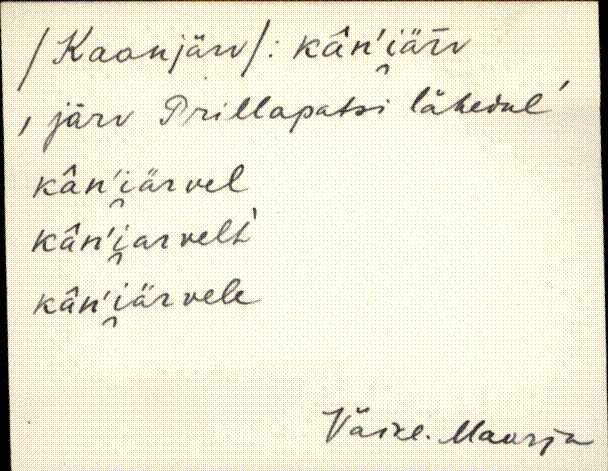 /Kaonjärv/: kân'i̯ärv
, järv Prillapatsi lähedul'
kân'i̯ärvel
kân'i̯arvelt
kân'i̯ärvele
Väike-Maarja